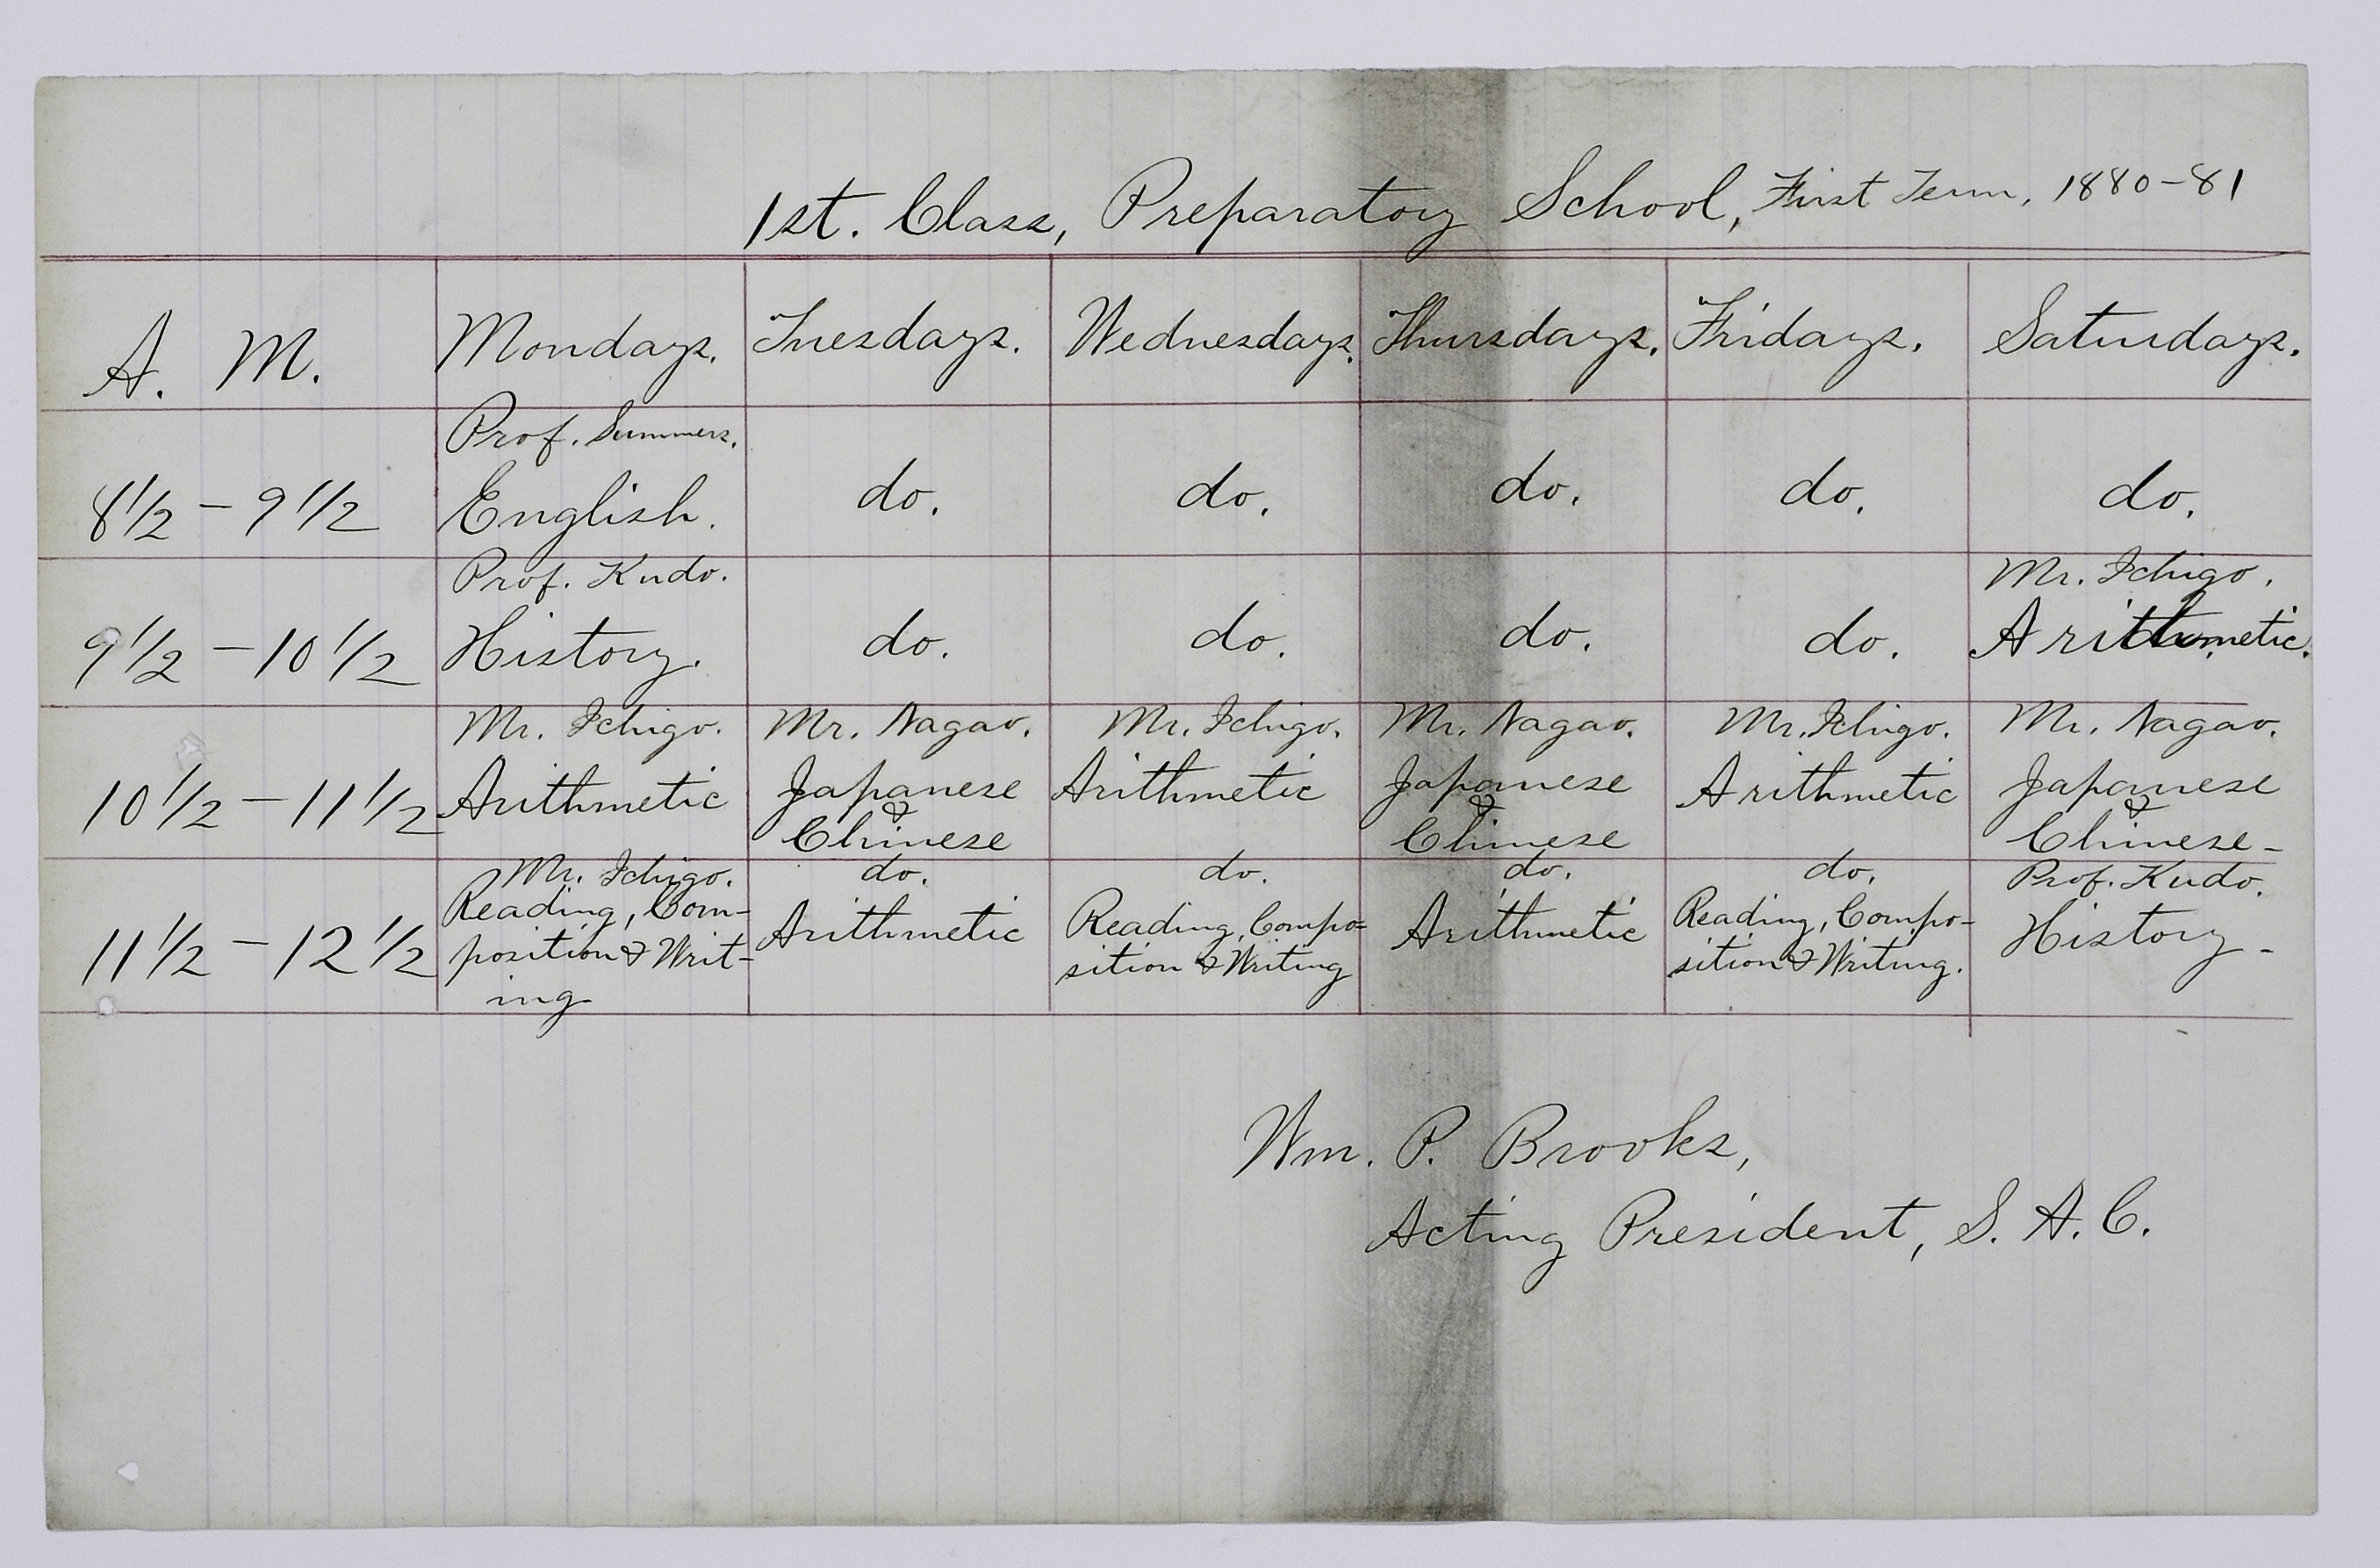 1st. Class, Preparatory School, First Term, 1880-81
A. M. Mondays. Tuesdays. Wednesdays. Thursdays. Fridays. Saturdays.
Prof. Summers.
8 1/2 - 9 1/2 English. do. do. do. do. do.
Prof. Kudo. Mr. Ichigo.
9 1/2 - 10 1/2 History. do. do. do. do. Arithmetic.
Mr. Ichigo. Mr. Nagao. Mr. Ichigo. Mr. Nagao. Mr. Ichigo. Mr. Nagao.
10 1/2 - 11 1/2 Arithmetic Japanese Arithmetic Japanese Arithmetic Japanese
& & &
Chinese Chinese Chinese-
Mr. Ichigo. do. do. do. do. Prof. Kudo.
Reading, Com- Arithmetic Reading, Compo- Arithmetic Reading, Compo- History-
11 1/2 - 12 1/2 position & Writ- sition & Writing sition & Writing.
ing
Wm. P. Brooks,
Acting President, S. A. C.